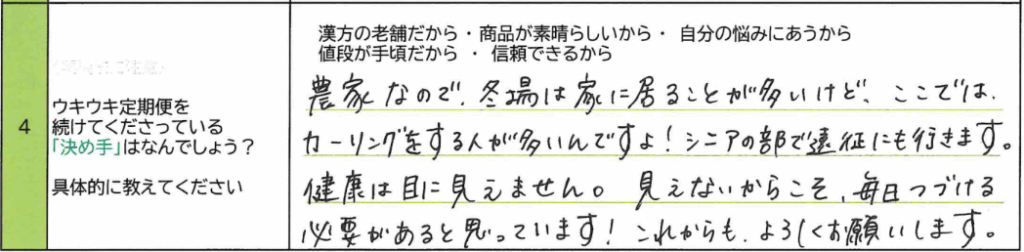 4
ウキウキ定期便を
続けてくださっている
「決め手」はなんでしょう?
具体的に教えてください
漢方の老舗だから・商品が素晴らしいから・ 自分の悩みにあうから
値段が手頃だから ・ 信頼できるから
農家なので、冬場は家に居ることが多いけど、ここでは、
カーリングをする人が多いんですよ!シニアの部で遠征にも行きます。
健康は目に見えません。見えないからこそ、毎日つづける
必要があると思っています!これからも、よろしくお願いします。